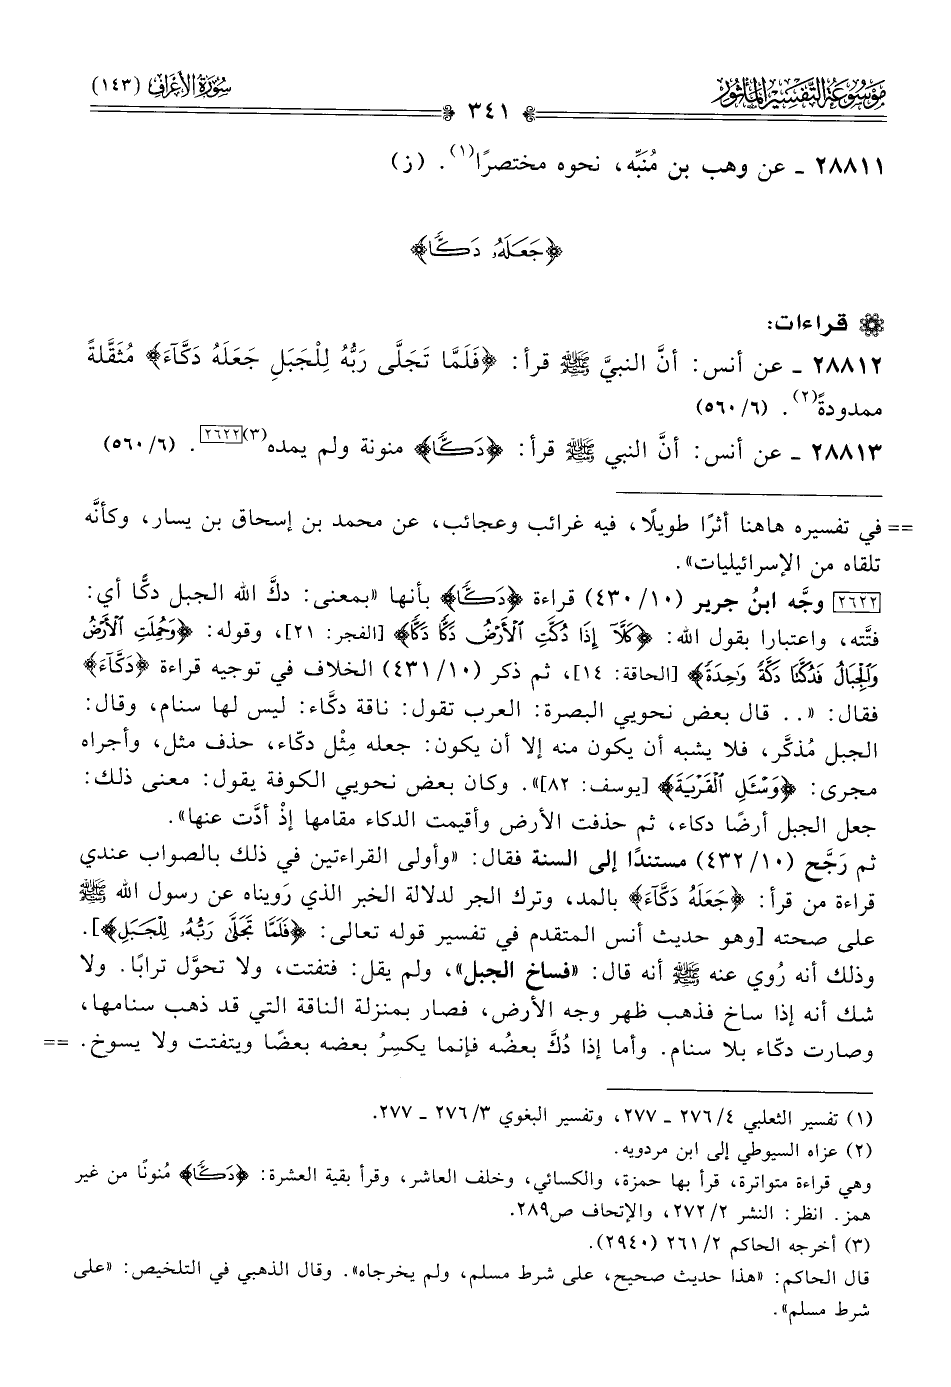 مَوْسُوعَة التَّفْسِير المَأْثُور
سُورَةُ الأَعْرَافِ (١٤٣)
٣٤١
٢٨٨١١ ـ عن وهب بن مُنَبِّه، نحوه مختصرًا(١). (ز)
﴿جَعَلَهُۥ دَكًّا﴾
قراءات:
٢٨٨١٢ ـ عن أنس: أنَّ النبيَّ ﷺ قرأ: ﴿فَلَمَّا تَجَلَّى رَبُّهُ لِلْجَبَلِ جَعَلَهُ دَكَّآءَ﴾ مُثَقَّلةً
ممدودةً(٢). (٥٦٠/٦)
٢٨٨١٣ ـ عن أنس: أنَّ النبي ﷺ قرأ: ﴿دَكًّا﴾ منونة ولم يمده(٣)[٢٦٢٢]. (٥٦٠/٦)
== في تفسيره هاهنا أثرًا طويلًا، فيه غرائب وعجائب، عن محمد بن إسحاق بن يسار، وكأنَّه
تلقاه من الإسرائيليات».
[٢٦٢٢] وجَّه ابنُ جرير (٤٣٠/١٠) قراءة ﴿دَكًّا﴾ بأنها «بمعنى: دكَّ الله الجبل دكًّا أي:
فتَّته، واعتبارا بقول الله: ﴿كَلَّآ إِذَا دُكَّتِ ٱلْأَرْضُ دَكًّا دَكًّا﴾ [الفجر: ٢١]، وقوله: ﴿وَحُمِلَتِ ٱلْأَرْضُ
وَٱلْجِبَالُ فَدُكَّتَا دَكَّةً وَٰحِدَةً﴾ [الحاقة: ١٤]، ثم ذكر (٤٣١/١٠) الخلاف في توجيه قراءة ﴿دَكَّآءَ﴾
فقال: «.. قال بعض نحويي البصرة: العرب تقول: ناقة دكَّاء: ليس لها سنام، وقال:
الجبل مُذكَّر، فلا يشبه أن يكون منه إلا أن يكون: جعله مِثْل دكّاء، حذف مثل، وأجراه
مجرى: ﴿وَسْـَٔلِ ٱلْقَرْيَةَ﴾ [يوسف: ٨٢]». وكان بعض نحويي الكوفة يقول: معنى ذلك:
جعل الجبل أرضًا دكاء، ثم حذفت الأرض وأقيمت الدكاء مقامها إذْ أدَّت عنها».
ثم رَجَّح (٤٣٢/١٠) مستندًا إلى السنة فقال: «وأولى القراءتين في ذلك بالصواب عندي
قراءة من قرأ: ﴿جَعَلَهُ دَكَّآءَ﴾ بالمد، وترك الجر لدلالة الخبر الذي رَويناه عن رسول الله ﷺ
على صحته [وهو حديث أنس المتقدم في تفسير قوله تعالى: ﴿فَلَمَّا تَجَلَّىٰ رَبُّهُۥ لِلْجَبَلِ﴾].
وذلك أنه رُوي عنه ﷺ أنه قال: «فساخ الجبل»، ولم يقل: فتفتت، ولا تحوَّل ترابًا. ولا
شك أنه إذا ساخ فذهب ظهر وجه الأرض، فصار بمنزلة الناقة التي قد ذهب سنامها،
وصارت دكّاء بلا سنام. وأما إذا دُكَّ بعضُه فإنما يكسِرُ بعضه بعضًا ويتفتت ولا يسوخ. ==
(١) تفسير الثعلبي ٢٧٦/٤ ـ ٢٧٧، وتفسير البغوي ٢٧٦/٣ ـ ٢٧٧.
(٢) عزاه السيوطي إلى ابن مردويه.
وهي قراءة متواترة، قرأ بها حمزة، والكسائي، وخلف العاشر، وقرأ بقية العشرة: ﴿دَكًّا﴾ مُنونًا من غير
همز. انظر: النشر ٢٧٢/٢، والإتحاف ص٢٨٩.
(٣) أخرجه الحاكم ٢٦١/٢ (٢٩٤٠).
قال الحاكم: «هذا حديث صحيح، على شرط مسلم، ولم يخرجاه». وقال الذهبي في التلخيص: «على
شرط مسلم».